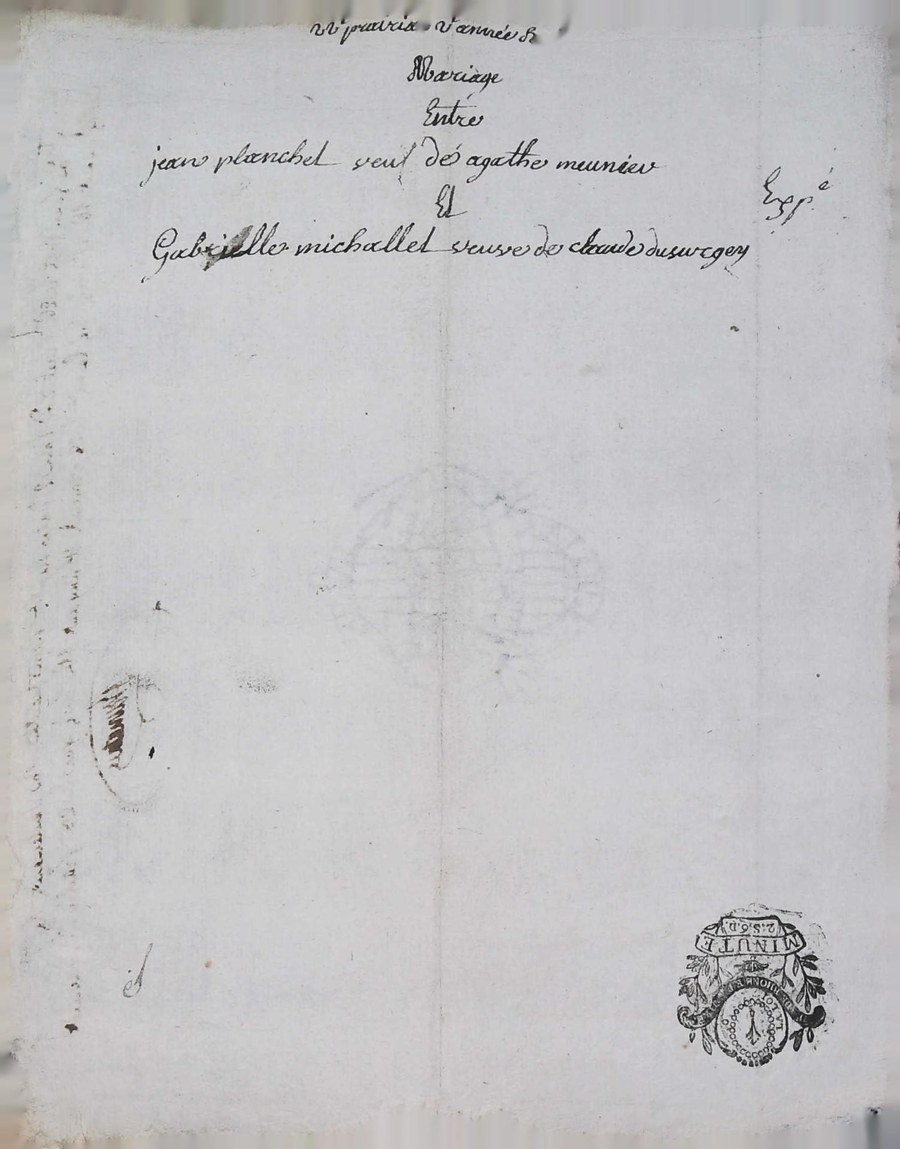 prairia v année R
Mariage
Entre
jean planchet veuf dé agathe meunier
Et
Expé
Gabrielle michallet veuve de claude dusurgey
MINUTE
2.S.6.D.
LA LOI